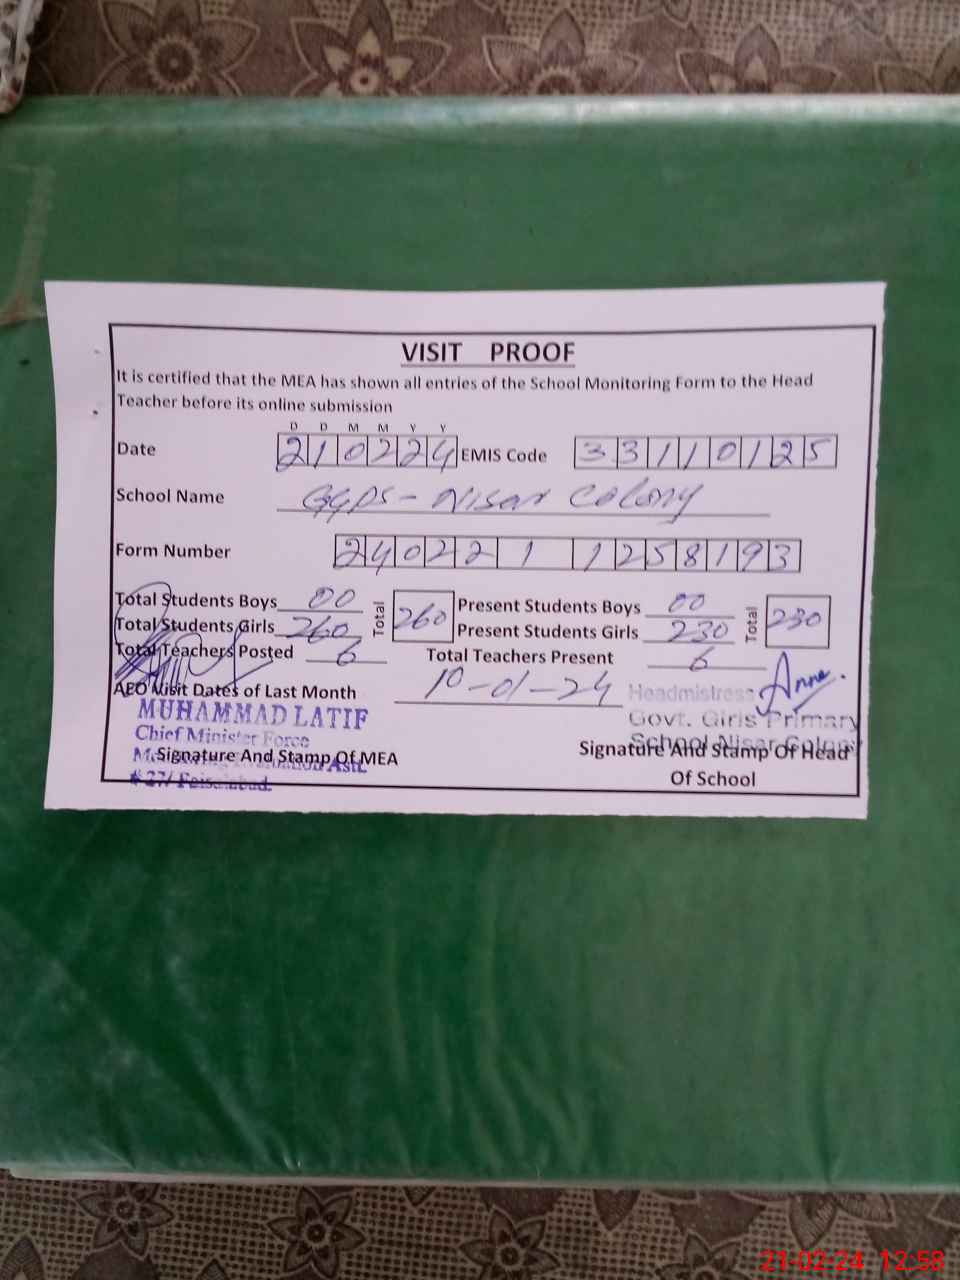 VISIT PROOF
It is certified that the MEA has shown all entries of the School Monitoring Form to the Head
Teacher before its online submission
D D M M Y Y
Date 210224 EMIS Code 33110125
School Name GGPS - Nisar Colony
Form Number 24022 1 1258193
Total Students Boys 00 Total 260 Present Students Boys 00 Total 230
Total Students Girls 260 Present Students Girls 230
Total Teachers Posted 6 Total Teachers Present 6
AEO Visit Dates of Last Month 10-01-24
Headmistress
Govt. Girls Primary
School Nisar Colony
MUHAMMAD LATIF
Chief Minister Force
Monitoring Evaluation Astt.
# 27/ Faisalabad.
Signature And Stamp Of MEA
Signature And Stamp Of Head
Of School
21-02-24 12:58